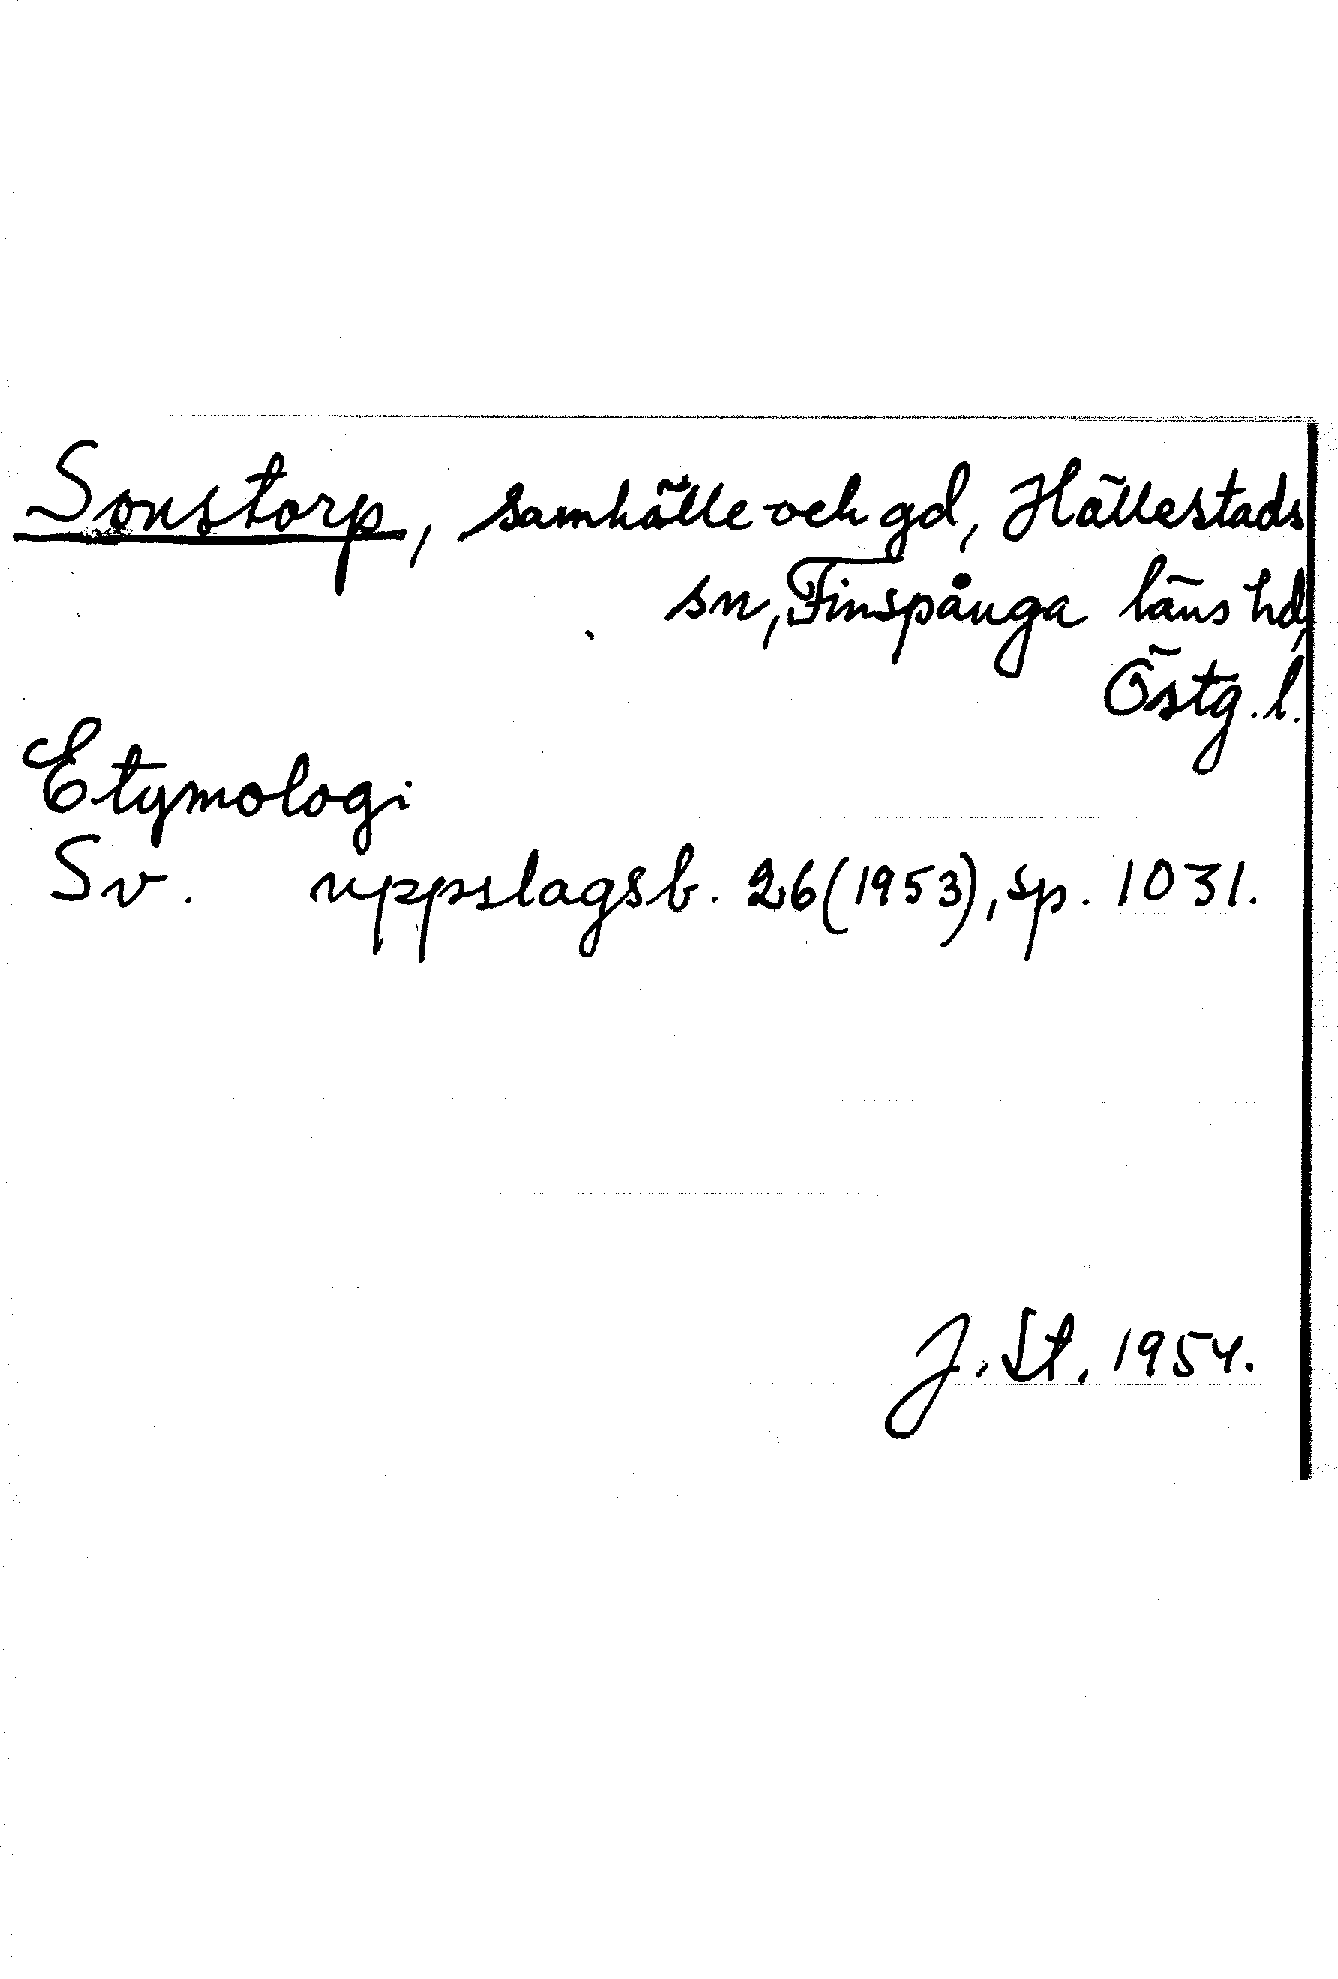 Sonstorp, samhälle och gd, Hällestads
sn, Finspånga läns hd,
Östg. l.
Etymologi
Sv. uppslagsb. 26 (1953), sp. 1031.
J. St. 1954.